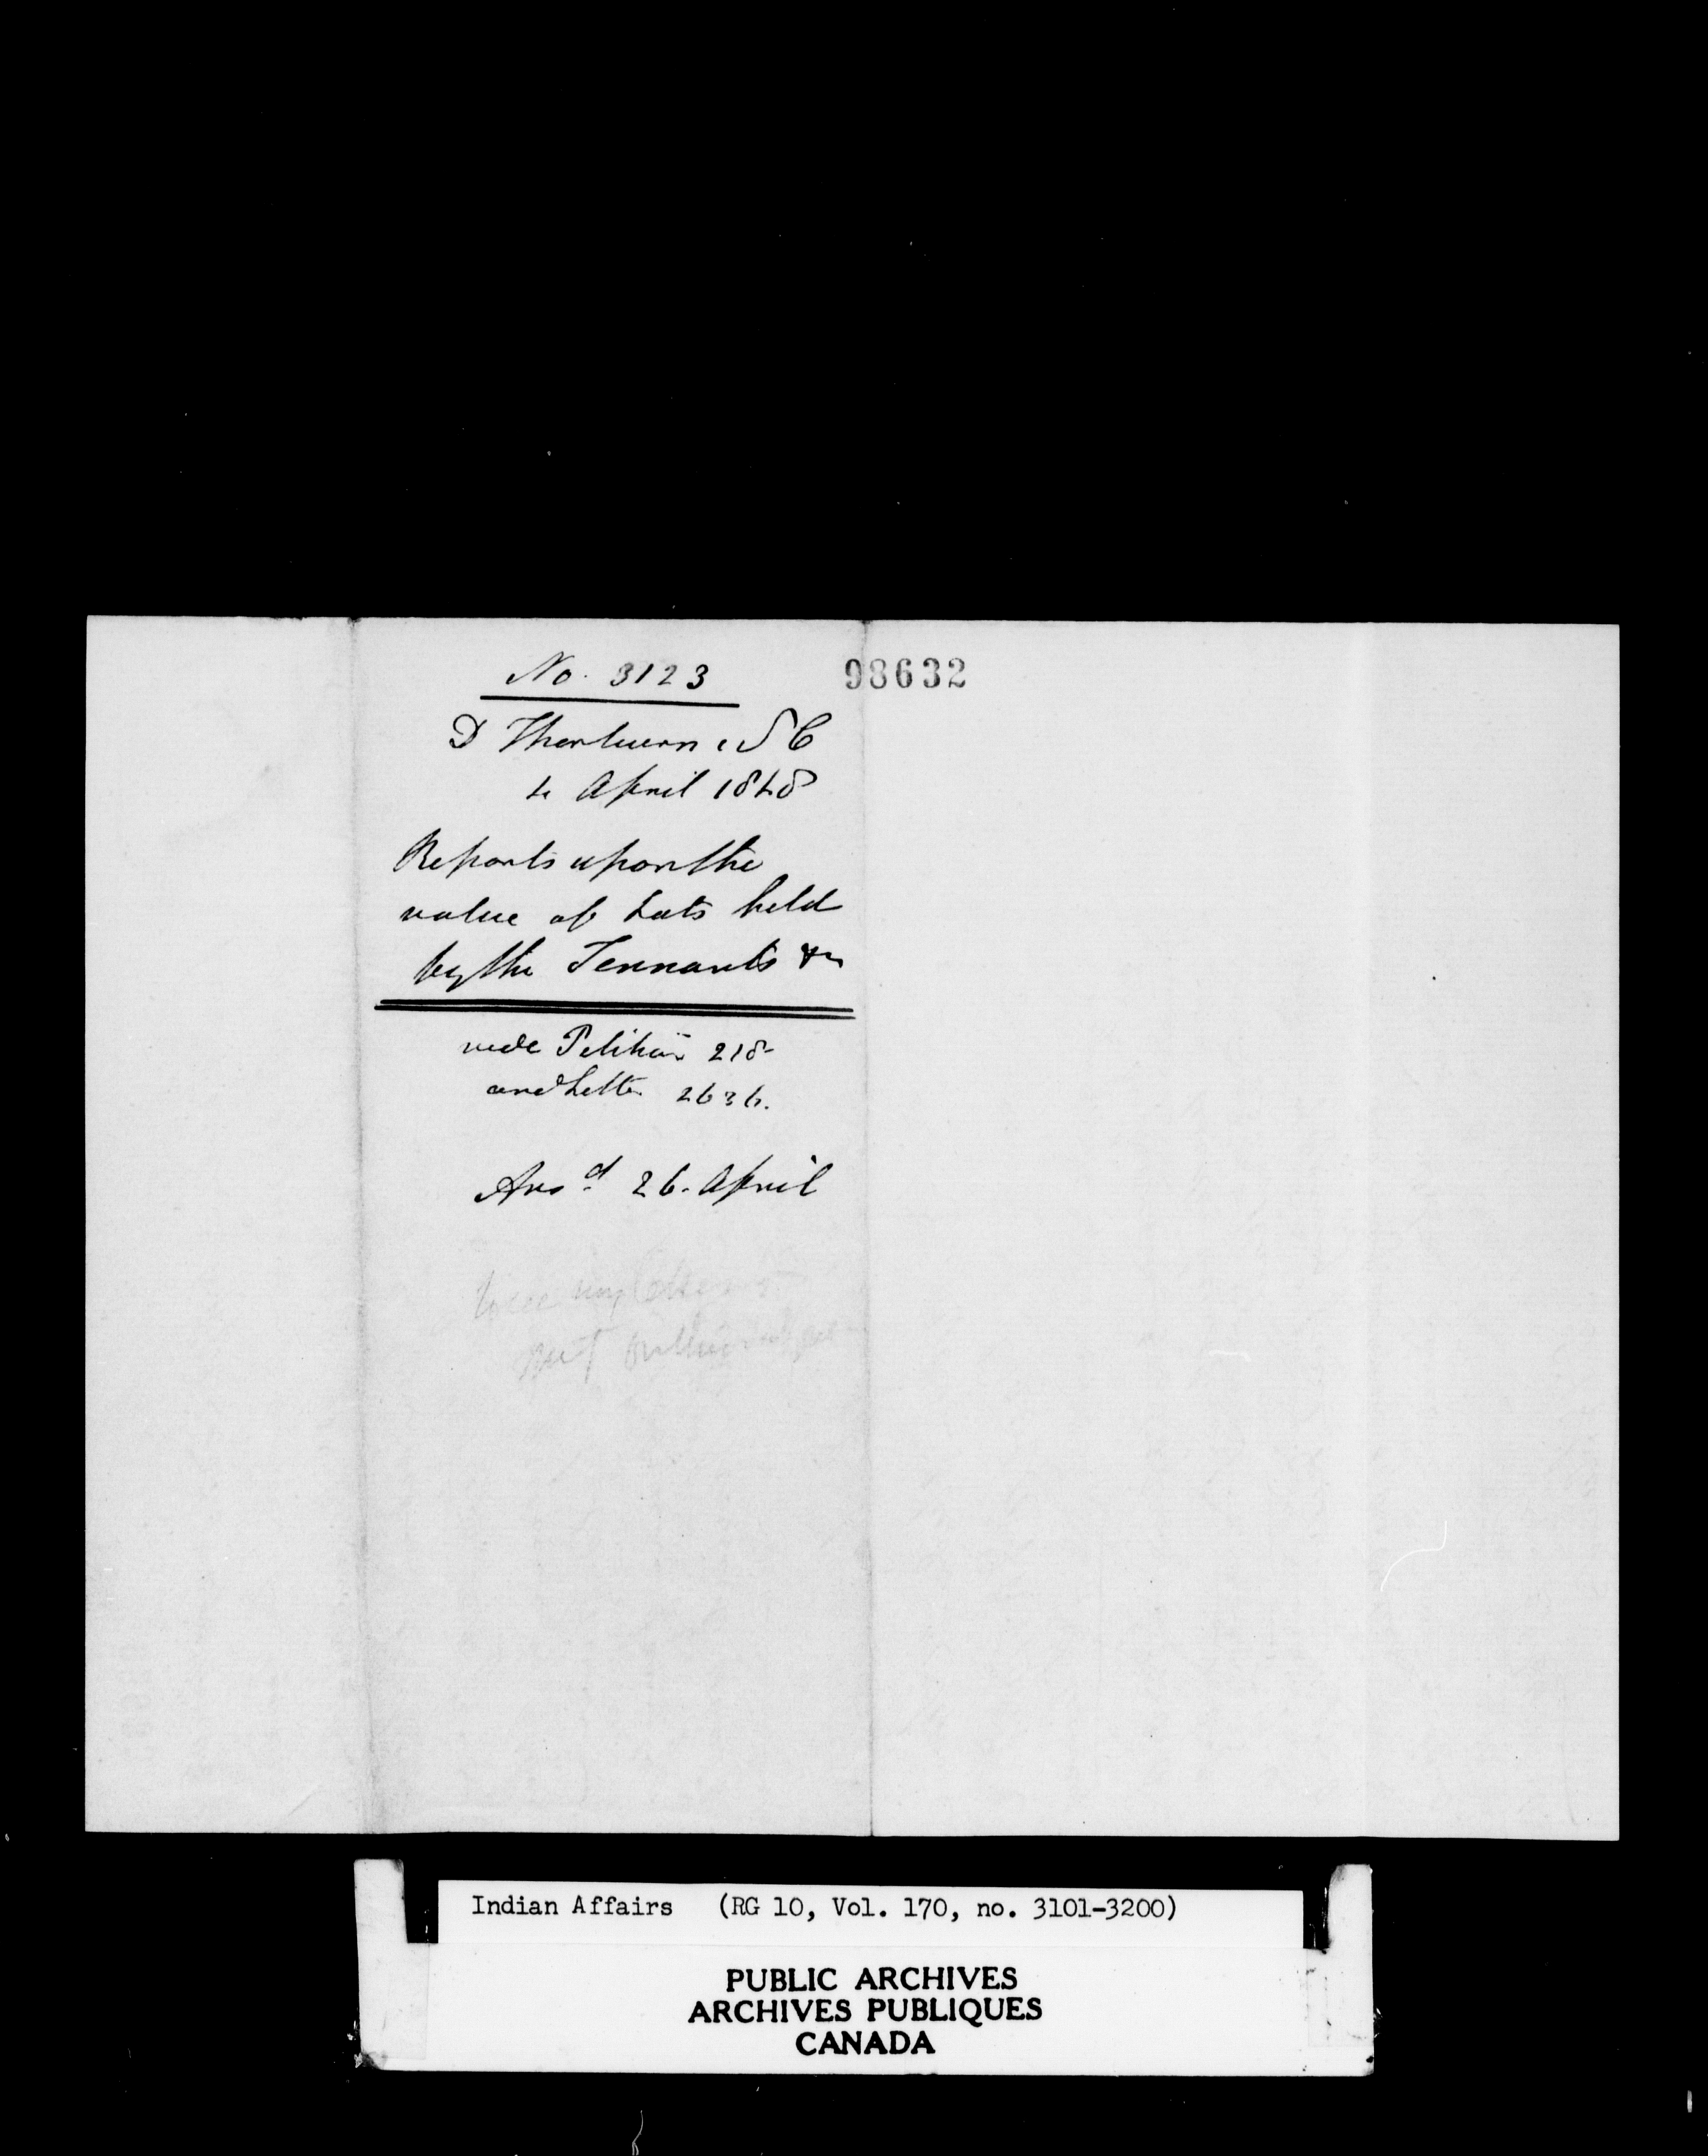 No. 3123
98632
D Thorburn, S C
4 April 1848
Reports upon the
value of Lots held
by the Tennants &c
vide Petition 218
and Letter 2636.
Ansd 26. April
Indian Affairs (RG 10, Vol. 170, no. 3101-3200)
PUBLIC ARCHIVES
ARCHIVES PUBLIQUES
CANADA